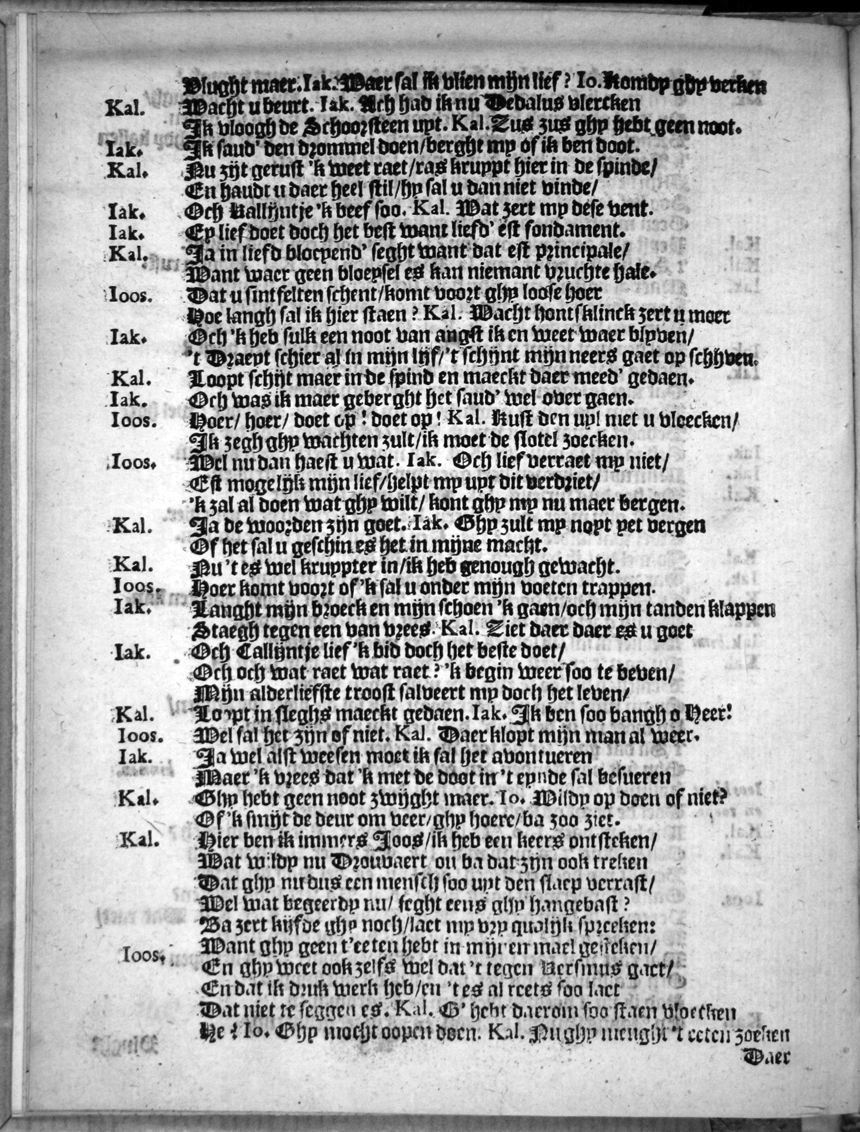 Vlught maer. Iak. Waer sal ik vlien mijn lief? Io. Komdy ghy verken
Kal. Wacht u beurt. Iak. Ach had ik nu Dedalus vlercken
Ik vloogh de Schoorsteen uyt. Kal. Zus zus ghy hebt geen noot.
Iak. Ik saud' den drommel doen/berght my of ik ben doot.
Kal. Nu zijt gerust 'k weet raet/ras kruypt hier in de spinde/
En haudt u daer heel stil/hy sal u dan niet vinde/
Iak. Och Kallijntje 'k beef soo. Kal. Wat zert my dese vent.
Iak. Ey lief doet doch het best want liefd' est fondament.
Kal. Ja in liefd bloeyend' seght want dat est principale/
Want waer geen bloeysel es kan niemant vruchte hale.
Ioos. Dat u sintfelten schent/komt voort ghy loose hoer
Hoe langh sal ik hier staen? Kal. Wacht hontsklinck zert u moer
Iak. Och 'k heb sulk een noot van angst ik en weet waer blyven/
't Draeyt schier al in mijn lijf/'t schijnt mijn neers gaet op schijven.
Kal. Loopt schijt maer in de spind en maeckt daer meed' gedaen.
Iak. Och was ik maer geberght het saud' wel over gaen.
Ioos. Hoer/ hoer/ doet op! doet op! Kal. Kust den uyl niet u vloecken/
Ik zegh ghy wachten zult/ik moet de slotel zoecken.
Ioos. Wel nu dan haest u wat. Iak. Och lief verraet my niet/
Est mogelijk mijn lief/helpt my uyt dit verdriet/
'k zal al doen wat ghy wilt/ kont ghy my nu maer bergen.
Kal. Ja de woorden zijn goet. Iak. Ghy zult my noyt yet vergen
Of het sal u geschin es het in mijne macht.
Kal. Nu 't es wel kruypter in/ik heb genough gewacht.
Ioos. Hoer komt voort of 'k sal u onder mijn voeten trappen.
Iak. Langht mijn broeck en mijn schoen 'k gaen/och mijn tanden klappen
Staegh tegen een van vrees. Kal. Ziet daer daer es u goet
Iak. Och Callijntje lief 'k bid doch het beste doet/
Och och wat raet wat raet? 'k begin weer soo te beven/
Mijn alderliefste troost salveert my doch het leven/
Kal. Loopt in sleghs maeckt gedaen. Iak. Ik ben soo bangh o Heer!
Ioos. Wel sal het zijn of niet. Kal. Daer klopt mijn man al weer.
Iak. Ja wel alst weesen moet ik sal het avontueren
Maer 'k vrees dat 'k met de doot in 't eynde sal besueren
Kal. Ghy hebt geen noot zwijght maer. Io. Wildy op doen of niet?
Of 'k smijt de deur om veer/ghy hoere/ba zoo ziet.
Kal. Hier ben ik immers Joos/ik heb een keers ontsteken/
Wat wildy nu Drouvaert ou ba dat zijn ook treken
Dat ghy nu dus een mensch soo uyt den slaep verrast/
Wel wat begeerdy nu/ seght eens ghy hangebast?
Ba zert kijfde ghy noch/laet my vry qualijk spreeken:
Ioos. Want ghy geen t'eeten hebt in mijn en mael gesteken/
En ghy weet ook zelfs wel dat 't tegen Eersmus gaet/
En dat ik druk werk heb/en 't es al reets soo laet
Dat niet te seggen es. Kal. G' hebt daerom soo staen vloecken
He? Io. Ghy mocht oopen doen. Kal. Nu ghy meught 't eeten zoeken
Daer